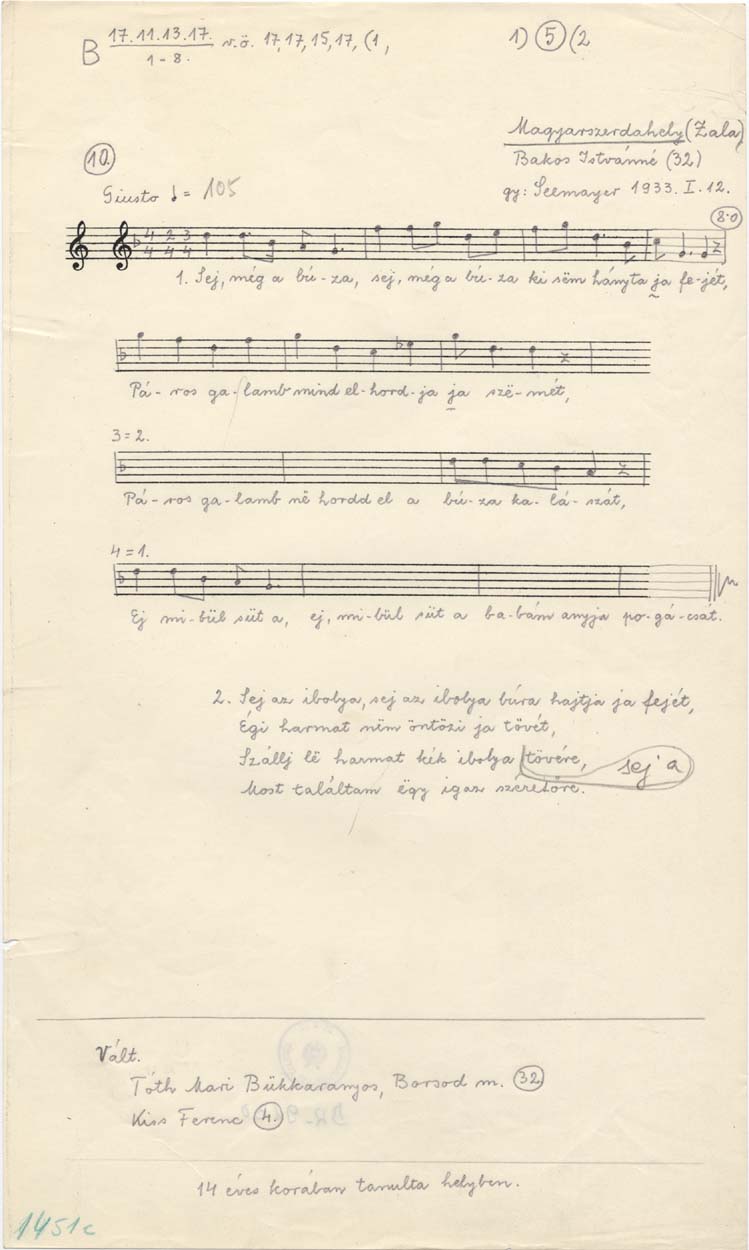 B 17.11.13.17. v.ö. 17,17,15,17, (1, 1) 5 (2
1-8.
Magyarszerdahely (Zala)
10. Bakos Istvánné (32)
Giusto = 105 gy: Seemayer 1933. I. 12.
8·0
4 2 3
4 4 4
1. Sej, még a bú-za, sej, még a bú-za ki sëm hányta ja fe-jét,
Pá-ros ga-lamb mind el-hord-ja ja szë-mét,
3=2.
Pá-ros ga-lamb në hordd el a bú-za ka-lá-szát,
4=1.
Ej mi-bül süt a, ej, mi-bül süt a ba-bám anyja po-gá-csát.
2. Sej az ibolya, sej az ibolya búra hajtja ja fejét,
Égi harmat nëm öntözi ja tövét,
Szállj lë harmat kék ibolya tövére, sej a
Most találtam ëgy igaz szëretőre.
Vált.
Tóth Mari Bükkaranyos, Borsod m. 32
Kiss Ferenc 4.
14 éves korában tanulta helyben.
1451c